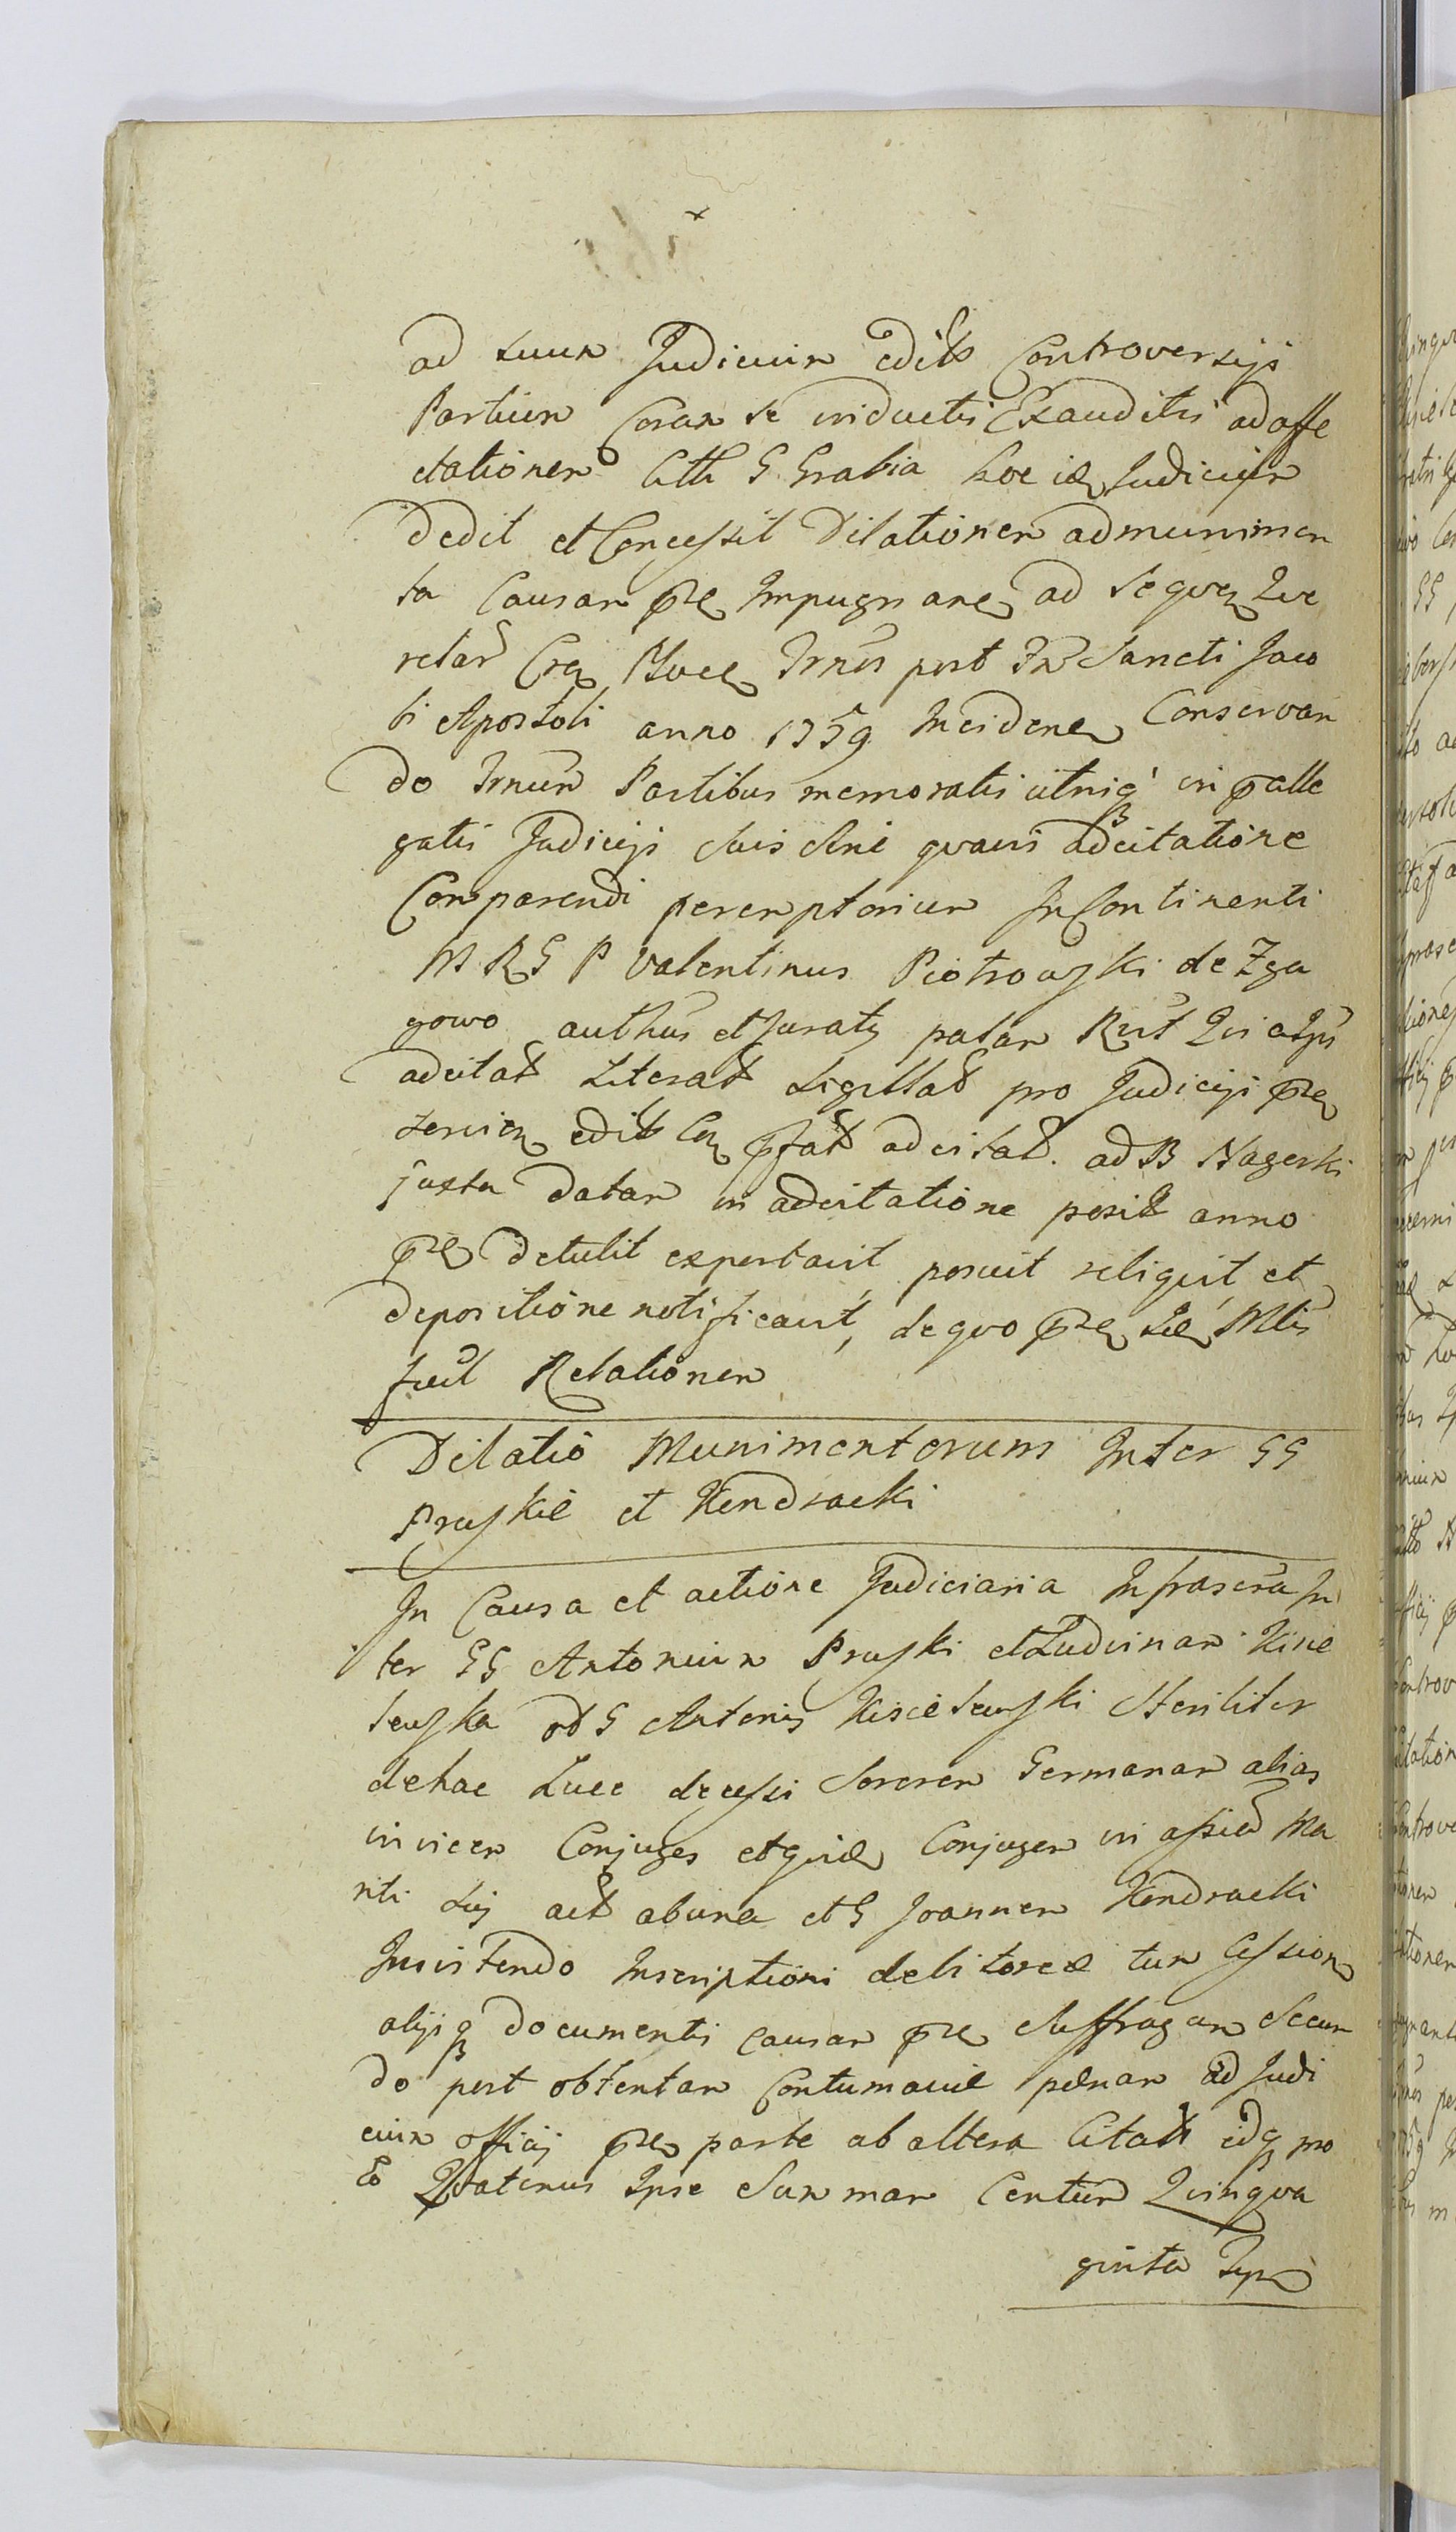 ad suum Judicium edit Controversijs
Partium Coram se inductis Exauditis ad affe
ctationem Citti G Grabia hoc id Judicium
dedit et Concessit Dilationem ad munimen
ta Causam pre Impugnare ad sequen Que
relar Cra Trnos post Fm Sancti Jaco
bi Apostoli anno 1759 Inciden Conservan
do Trnum Partibus memoratis utrisq in palle
gatis Judicijs suis sine quavis adcitatione
Comparendi peremptorium In Continenti
M R G P Valentinus Piotrowski de Zga
gowo authus et Juratus palam Rnt Qui
adcitat Literat Sigillat pro Judicijs pre
edit pfat adcitat. ad B Nagorki
juxta datam in adcitatione posit anno
pre detulit exportavit, posuit reliquit et
depositione notificavit, de quo pre Mlis
fecit Relationem
Dilatio Munimentorum Inter GG
Pruskie et Kendracki
In Causa et actione Judiciaria Infrascra In
ter GG Antonium Pruski et Ludvinam Kisie
lewska ob G Antonij Kisielewski Steriliter
de hac Luce decessi Sororem Germanam alias
invicem Conjuges et quid Conjugem in assied Ma
riti sui act ab una et G Joannem Kendracki
Insistendo Inscriptioni debitoreae tum Cession
alijsq documentis causam pre Suffragan Secun
do post obtentam Contumaciae paenam ad Judi
cium officij pre parte ab altera Citatt idq pro
Eo Quatenus Ipse Summam Centum Quinqua
ginta